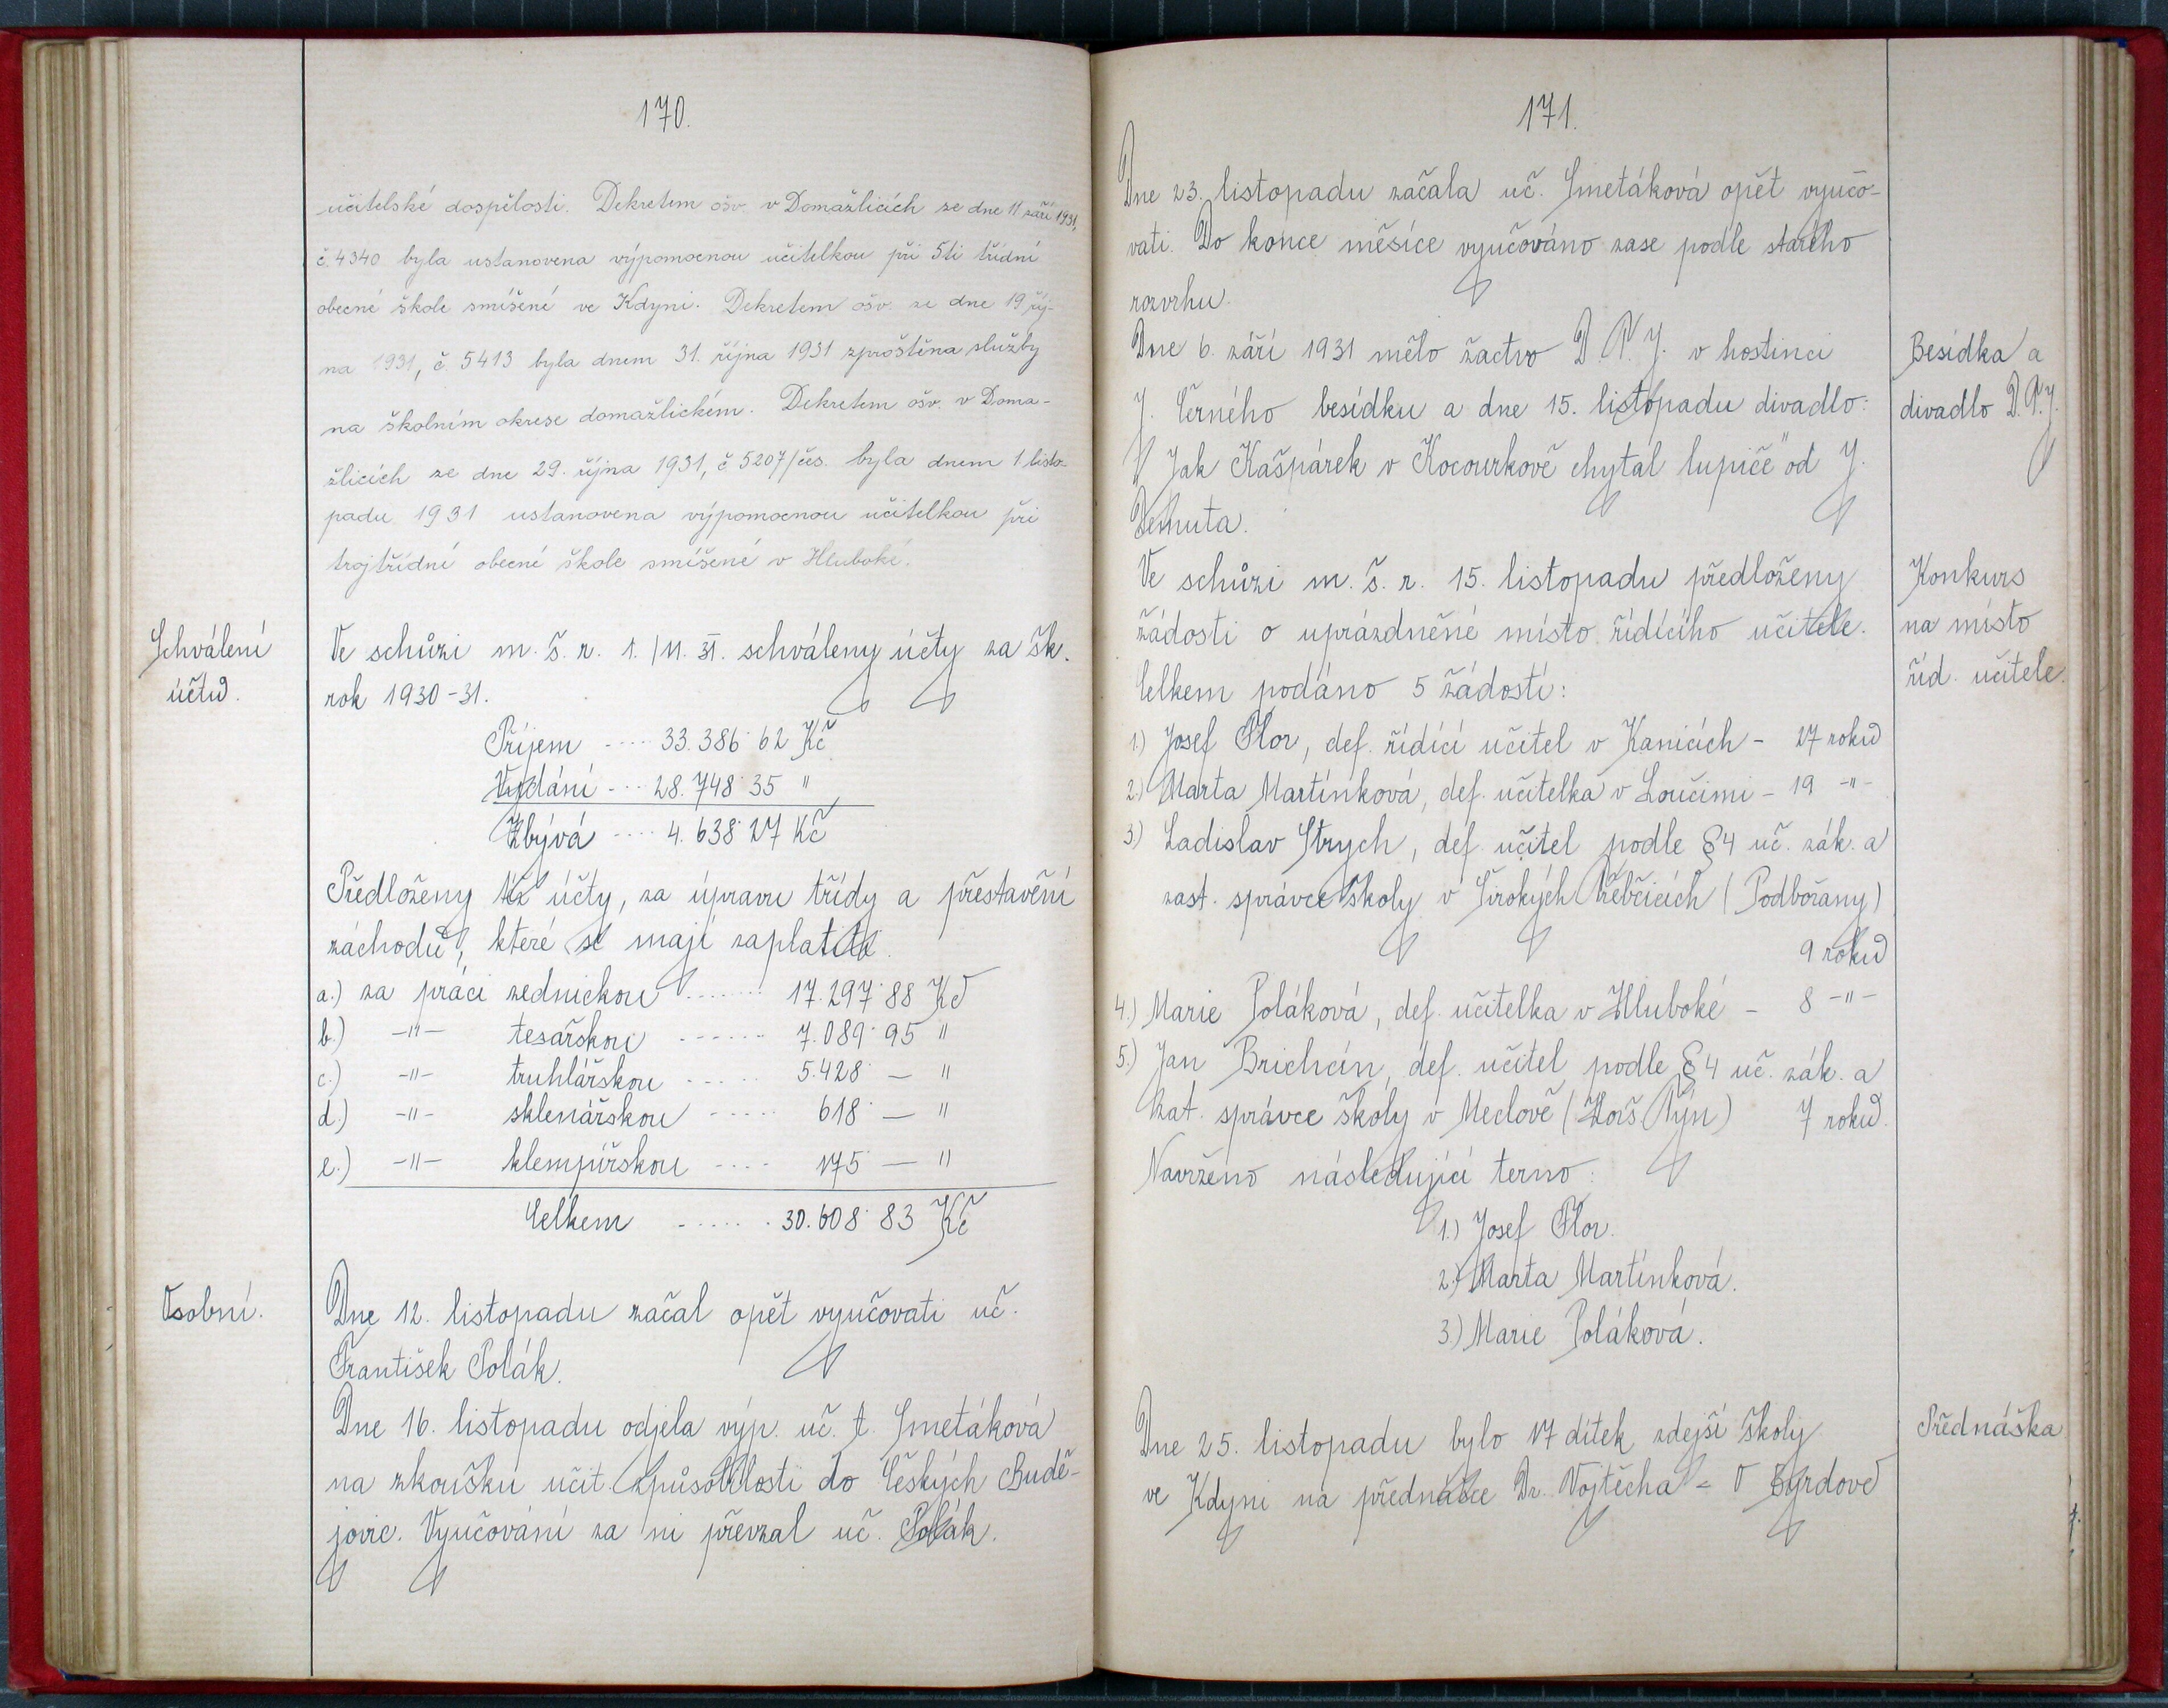 170.
učitelské dospělosti. Dekretem ošv. v Domažlicích ze dne 11 září 1931,
č. 4340 byla ustanovena výpomocnou učitelkou při 5ti třídní
obecné škole smíšené ve Kdyni. Dekretem ošv. ze dne 19 říj-
na 1931, č. 5413 byla dnem 31. října 1931 zproštěna služby
na školním okrese domažlickém. Dekretem ošv. v Doma-
žlicích ze dne 29. října 1931, č 5207/čes. byla dnem 1 listo-
padu 1931 ustanovena výpomocnou učitelkou při
trojtřídní obecné škole smíšené v Hluboké.
Schválení
účtů.
Ve schůzi m. š. r. 1./11. 31. schváleny účty za šk.
rok 1930-31.
Příjem ---- 33.386·62 Kč
Vydání --- 28.748·35 "
Zbývá ---- 4.638·27 Kč
Předloženy též účty, za úpravu třídy a přestavění
záchodů, které se mají zaplatiti.
a.) za práci zednickou ------- 17.297·88 Kč
b.) -"- tesařskou ------ 7.089·95 "
c.) -"- truhlářskou ----- 5.428·— "
d.) -"- sklenářskou ----- 618·— "
e.) -"- klempířskou ---- 175 — "
Celkem ------ 30.608·83 Kč
Osobní.
Dne 12. listopadu začal opět vyučovati uč.
František Polák.
Dne 16. listopadu odjela výp. uč. t. Smetáková
na zkoušku učit. způsobilosti do Českých Budě-
jovic. Vyučování za ni převzal uč. Polák.
171.
Dne 23. listopadu začala uč. Smetáková opět vyučo-
vati. Do konce měsíce vyučováno zase podle starého
rozvrhu.
Dne 6. září 1931 mělo žactvo D. T. J. v hostinci
J. Černého besídku a dne 15. listopadu divadlo:
„Jak Kašpárek v Kocourkově chytal lupiče" od J.
Demuta.
Besídka a
divadlo D. T. J.
Ve schůzi m. š. r. 15. listopadu předloženy
žádosti o uprázdněné místo řídícího učitele.
Celkem podáno 5 žádostí:
Konkurs
na místo
říd. učitele.
1.) Josef Flor, def. řídící učitel v Kanicích - 27 roků
2.) Marta Martínková, def. učitelka v Loučimi - 19 -"-
3.) Ladislav Strych, def. učitel podle §4 uč. zák. a
zast. správce školy v Širokých Třebčicích (Podbořany)
9 roků
4.) Marie Poláková, def. učitelka v Hluboké - 8 -"-
5.) Jan Brichcín, def. učitel podle §4 uč. zák. a
zat. správce školy v Meclově (Horš. Týn) 7 roků.
Navrženo následující terno:
1.) Josef Flor.
2.) Marta Martínková.
3.) Marie Poláková.
Dne 25. listopadu bylo 17 dítek zdejší školy
ve Kdyni na přednášce Dr. Vojtěcha - O Byrdově
Přednáška